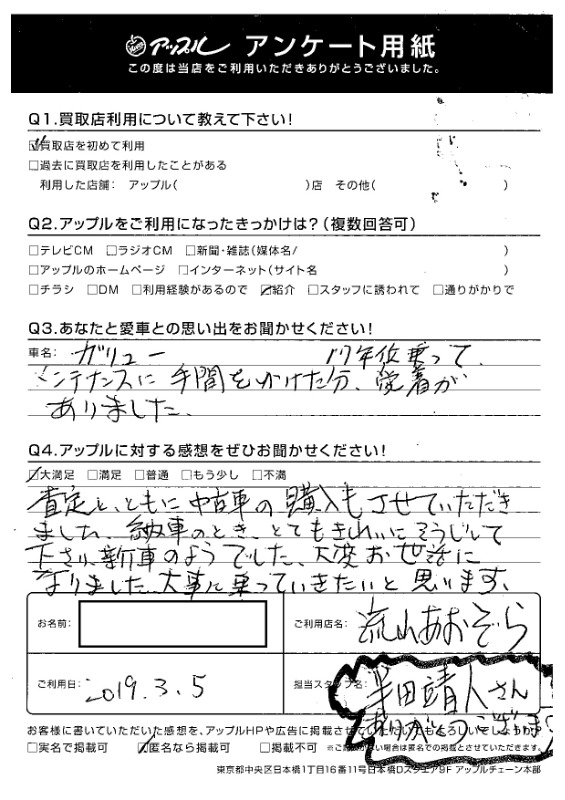 アップル アンケート用紙
この度は当店をご利用いただきありがとうございました。
Q1.買取店利用について教えて下さい!
☑買取店を初めて利用
□過去に買取店を利用したことがある
利用した店舗: アップル( )店 その他( )
Q2.アップルをご利用になったきっかけは?(複数回答可)
□テレビCM □ラジオCM □新聞・雑誌(媒体名/ )
□アップルのホームページ □インターネット(サイト名 )
□チラシ □DM □利用経験があるので ☑紹介 □スタッフに誘われて □通りがかりで
Q3.あなたと愛車との思い出をお聞かせください!
車名: ガリュー 17年位乗って、
メンテナンスに手間をかけた分、愛着が
ありました。
Q4.アップルに対する感想をぜひお聞かせください!
☑大満足 □満足 □普通 □もう少し □不満
査定と、ともに中古車の購入もさせていただき
ました。納車のとき、とてもきれいにそうじして
下さり、新車のようでした。大変お世話に
なりました。大事に乗っていきたいと思います。
お名前:
ご利用店名: 流山あおぞら
ご利用日: 2019.3.5
担当スタッフ名: 半田靖人さん
ありがとうございます
お客様に書いていただいた感想を、アップルHPや広告に掲載させていただいてもよろしいでしょうか
□実名で掲載可 ☑匿名なら掲載可 □掲載不可 ※ご記入がない場合は匿名での掲載とさせていただきます。
東京都中央区日本橋1丁目16番11号日本橋Dスクエア9F アップルチェーン本部